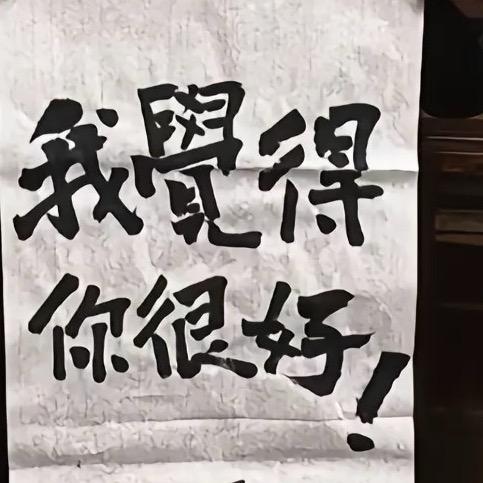 我覺得
你很好!